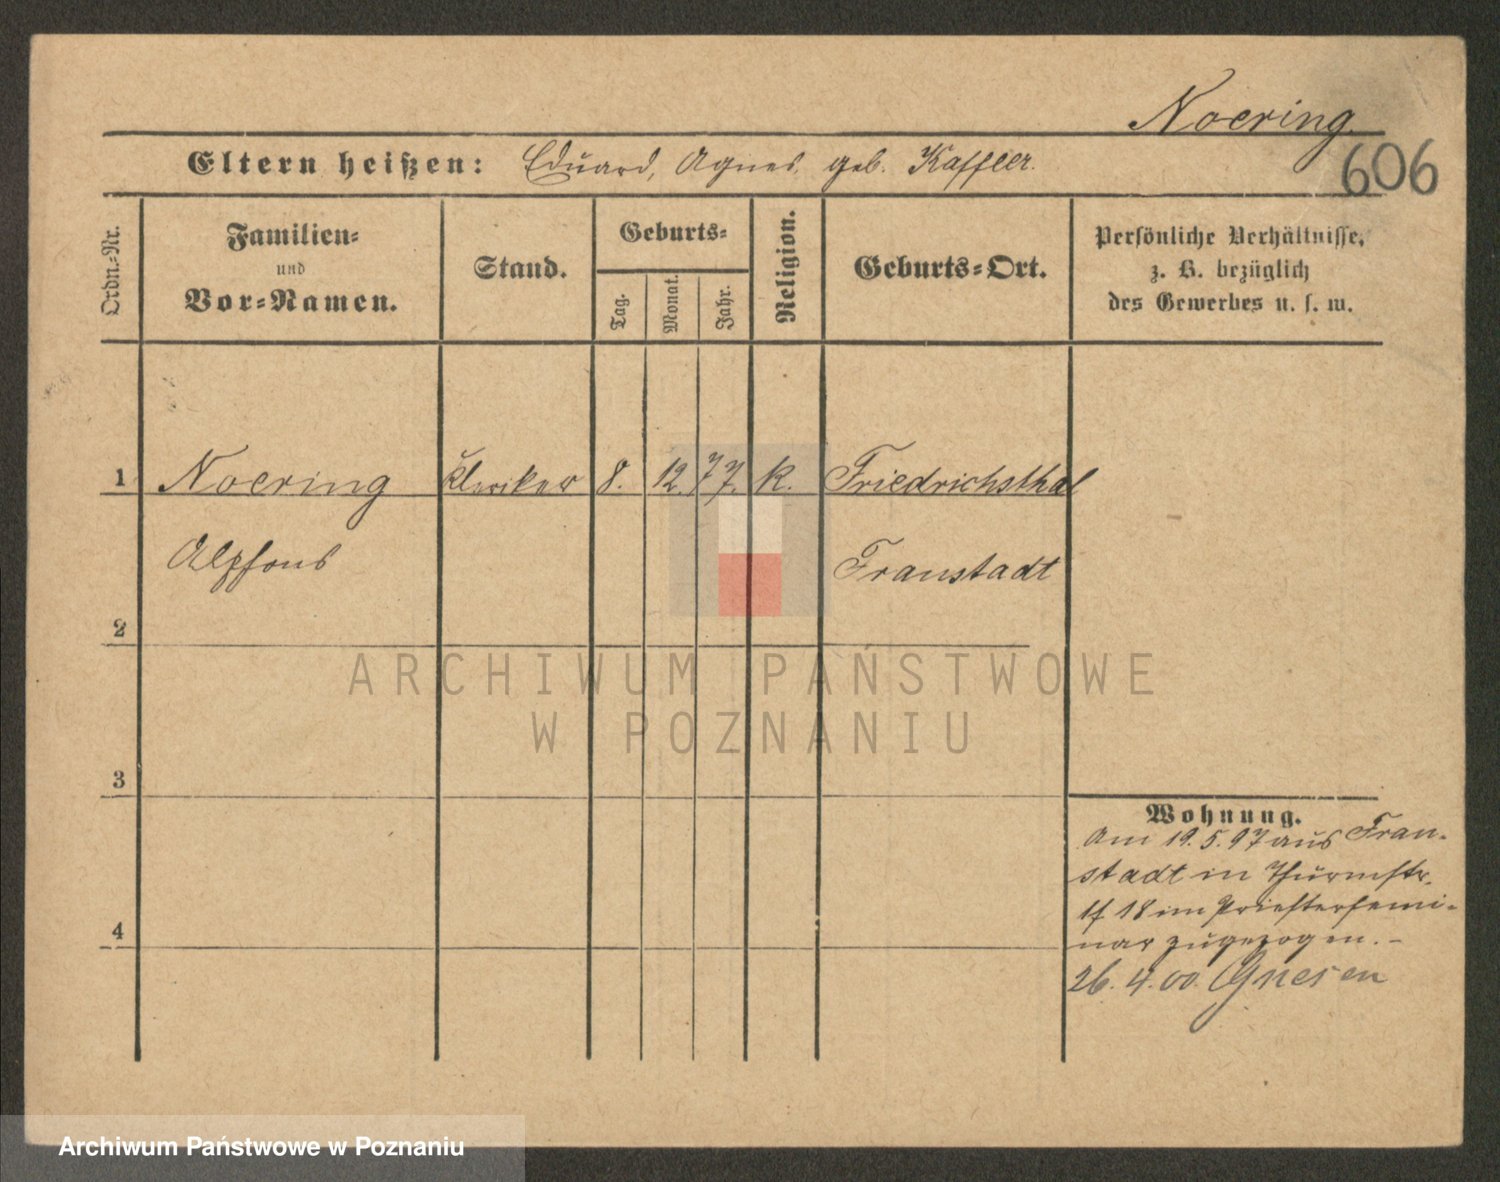 Noering.
606
Eltern heißen: Eduard, Agnes geb. Kaffler.
Ordn.-Nr.
Familien-
und
Vor-Namen.
Stand.
Geburts-
Tag.
Monat.
Jahr.
Religion.
Geburts-Ort.
Persönliche Verhältnisse,
z. B. bezüglich
des Gewerbes u. s. w.
1 Noering Kleriker 8. 12. 77. k. Friedrichsthal
Alphons Fraustadt
2
ARCHIWUM PAŃSTWOWE
W POZNANIU
3
Wohnung.
Am 19. 5. 97 aus Frau-
stadt in Thurmstr.
17/18 im Priestersemi-
4
nar zugezogen. -
26. 4. 00. Gnesen
Archiwum Państwowe w Poznaniu